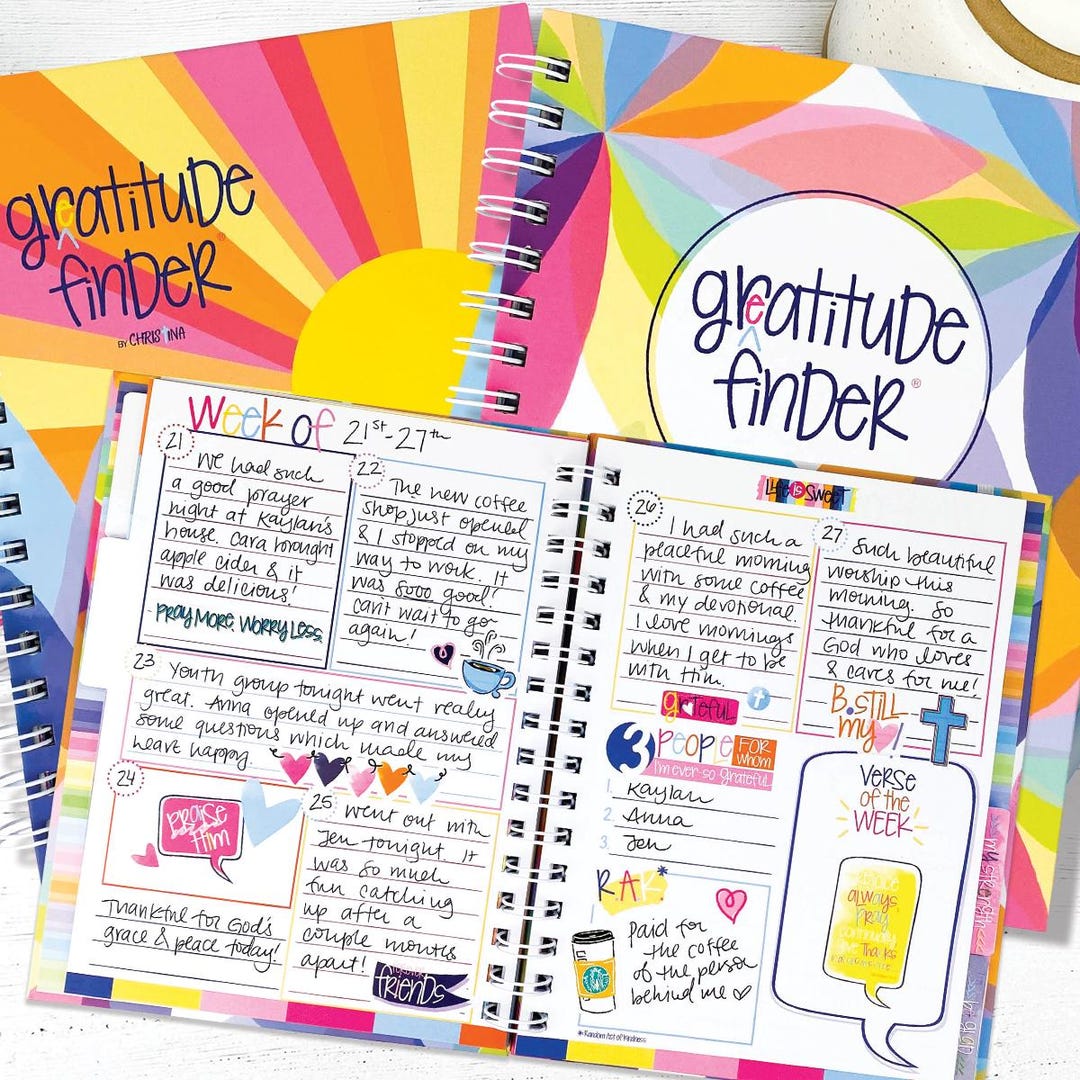 greatitude
finder®
BY CHRISTINA
greatitude
finder®
Week of 21st-27th
21
We had such
a good prayer
night at Kaylan's
house. Cara brought
apple cider & it
was delicious!
PRAY MORE. WORRY LESS.
22
The new coffee
shop just opened
& I stopped on my
way to work. It
was sooo good!
can't wait to go
again!
23
Youth group tonight went really
great. Anna opened up and answered
some questions which made my
heart happy.
24
praise
Him
Thankful for God's
grace & peace today!
25
Went out with
Jen tonight. It
was so much
fun catching
up after a
couple months
apart!
FRIENDS
LIFE IS SWEET
26
I had such a
peaceful morning
with some coffee
& my devotional.
I love mornings
when I get to be
with Him.
grateful
27
Such beautiful
worship this
morning. So
thankful for a
God who loves
& cares for me!
B.STILL
my !
3 PEOPLE FOR WHOM
I'm ever-so grateful
1. Kaylan
2. Anna
3. Jen
R.A.K.*
Paid for
the coffee
of the person
behind me
*Random Act of Kindness
VERSE
OF THE
WEEK
always
pray
continually
give thanks
my strength